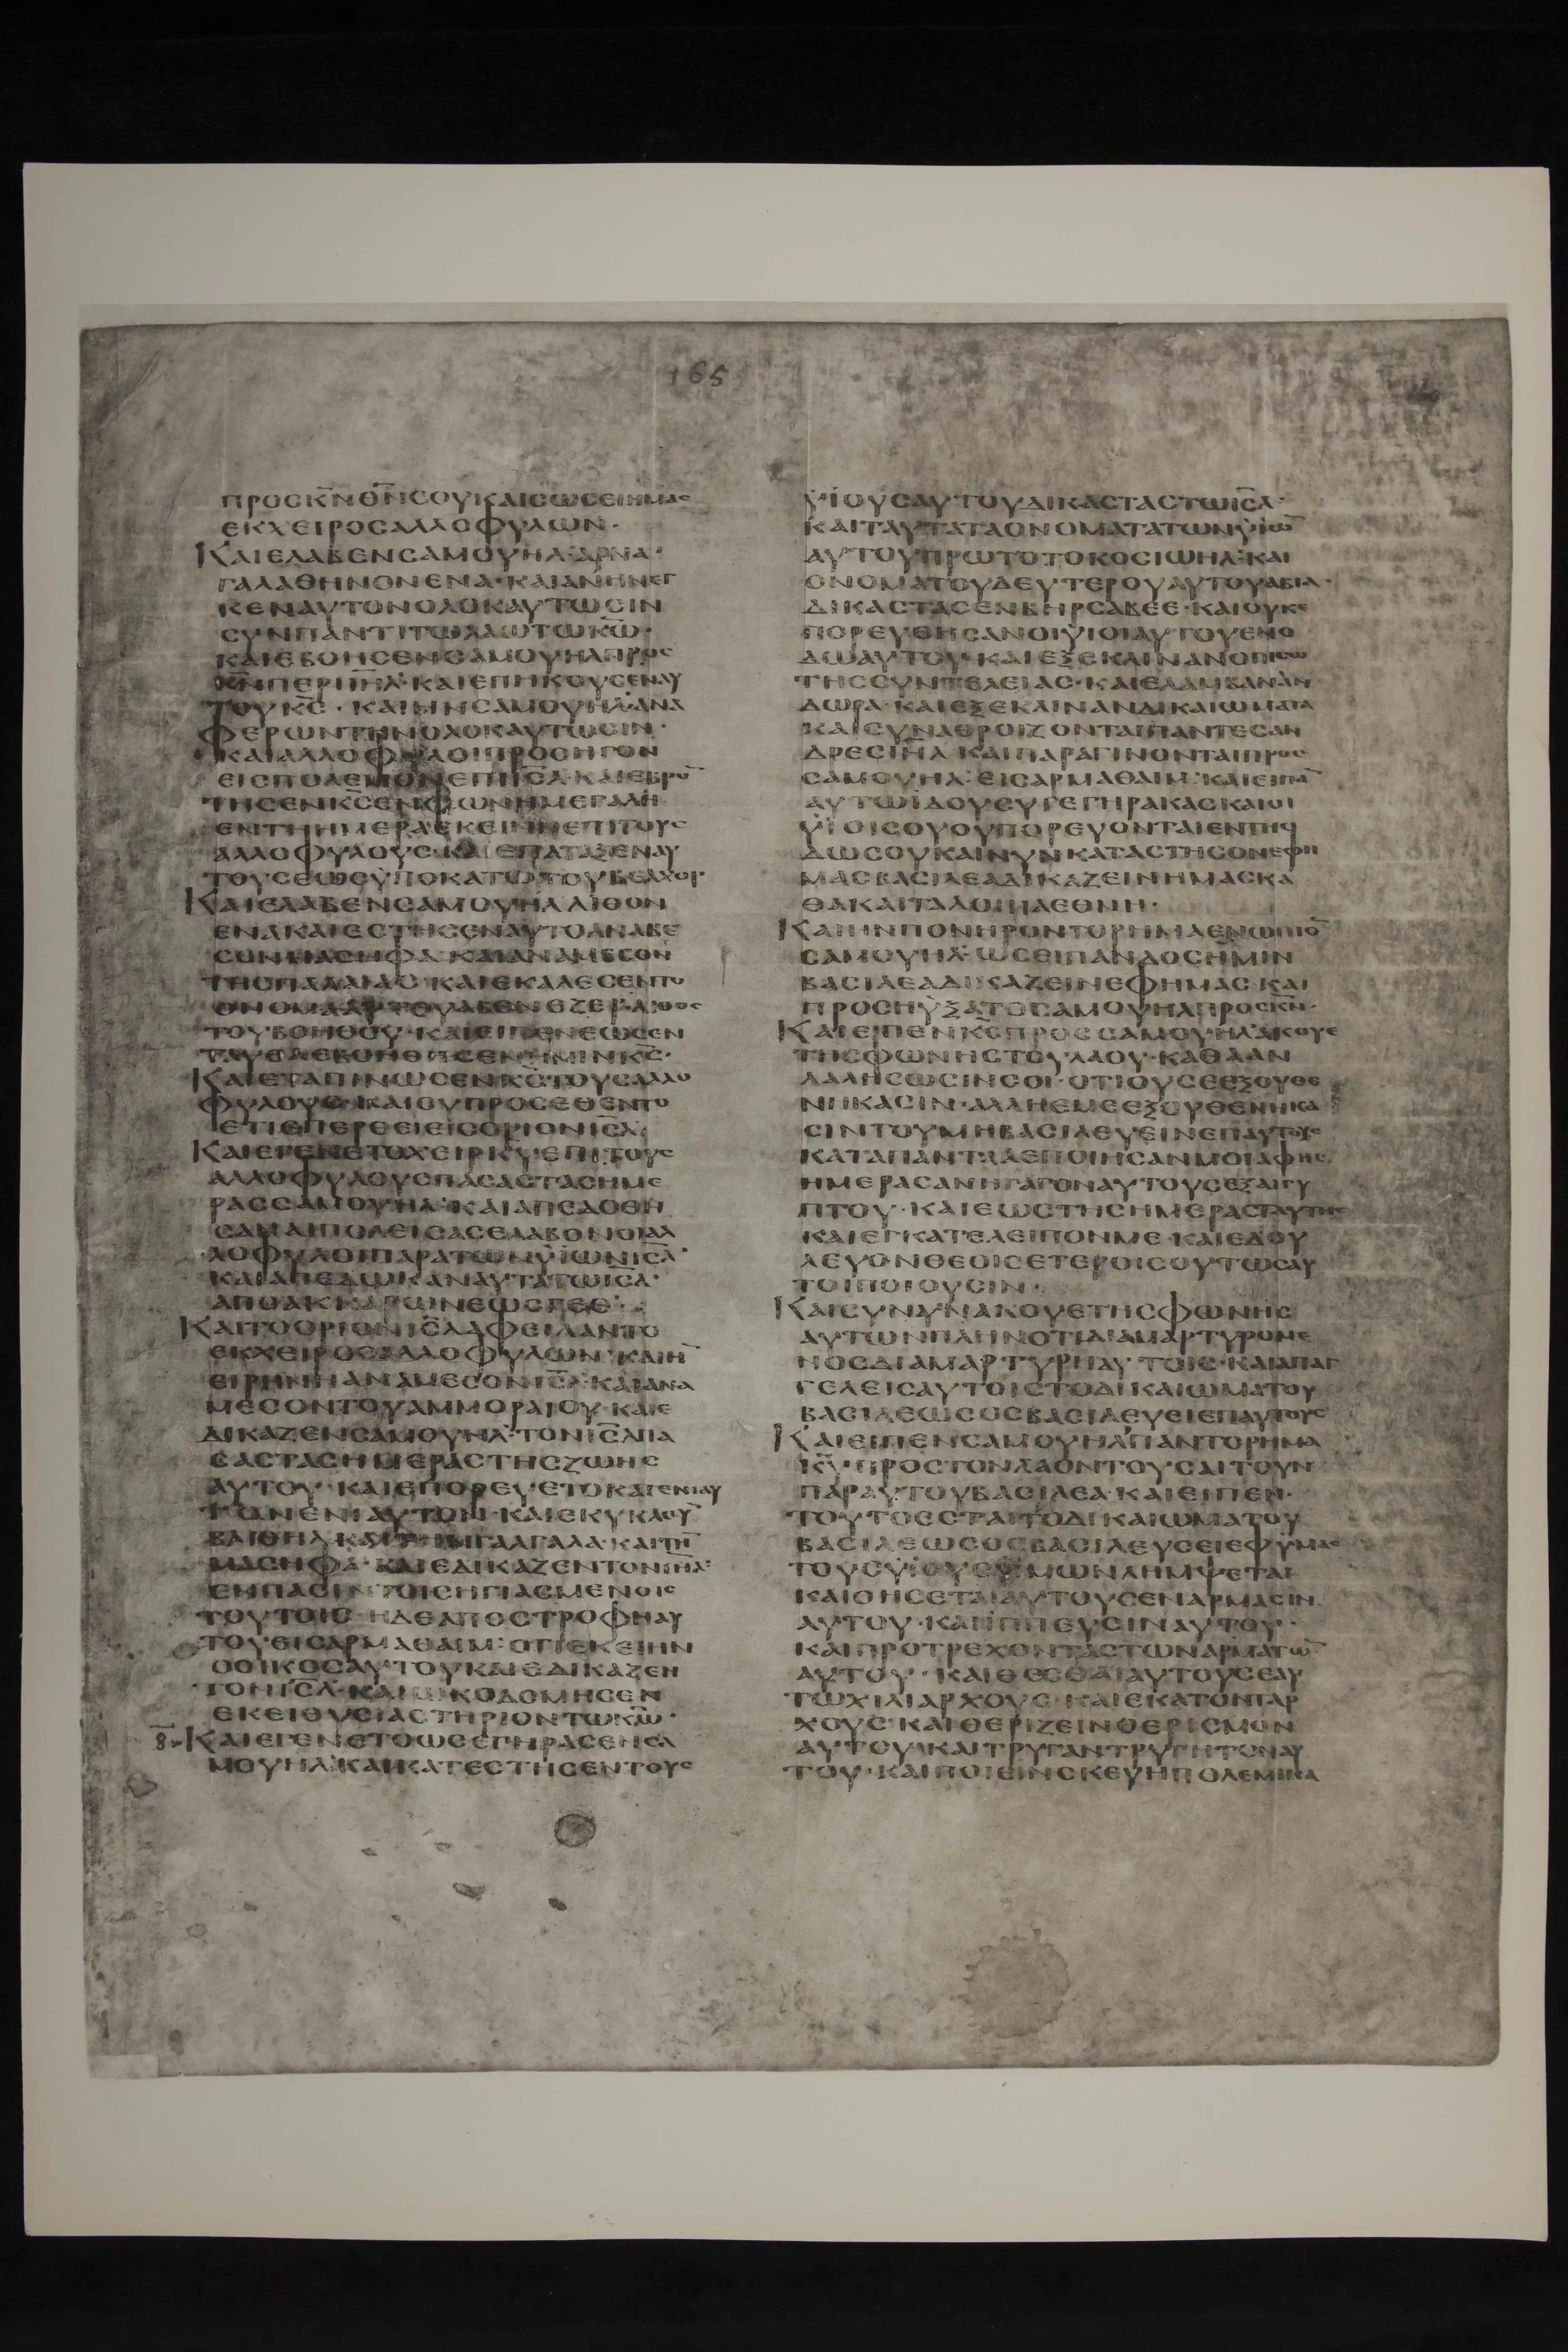 165
ΠΡΟΣΚ̅Ν̅ Θ̅Ν̅ΣΟΥΚΑΙΣΩΣΕΙΗΜΑΣ
ΕΚΧΕΙΡΟΣΑΛΛΟΦΥΛΩΝ·
ΚΑΙΕΛΑΒΕΝΣΑΜΟΥΗΛ·ΑΡΝΑ·
ΓΑΛΑΘΗΝΟΝΕΝΑ·ΚΑΙΑΝΗΝΕΓ
ΚΕΝΑΥΤΟΝΟΛΟΚΑΥΤΩΣΙΝ
ΣΥΝΠΑΝΤΙΤΩΛΑΩΤΩΚ̅Ω̅·
ΚΑΙΕΒΟΗΣΕΝΣΑΜΟΥΗΛΠΡΟΣ
Κ̅Ν̅ΠΕΡΙΙ̅Η̅Λ̅·ΚΑΙΕΠΗΚΟΥΣΕΝΑΥ
ΤΟΥΚ̅Σ̅·ΚΑΙΗΝΣΑΜΟΥΗΛ·ΑΝΑ
ΦΕΡΩΝΤΗΝΟΛΟΚΑΥΤΩΣΙΝ·
ΚΑΙΑΛΛΟΦΥΛΟΙΠΡΟΣΗΓΟΝ
ΕΙΣΠΟΛΕΜΟΝΕΠΙΙ̅Σ̅Λ̅·ΚΑΙΕΒΡΟ̅
ΤΗΣΕΝΚ̅Σ̅ΕΝΦΩΝΗΜΕΓΑΛΗ
ΕΝΤΗΗΜΕΡΑΕΚΕΙΝΗΕΠΙΤΟΥΣ
ΑΛΛΟΦΥΛΟΥΣ·ΚΑΙΕΠΑΤΑΞΕΝΑΥ
ΤΟΥΣΕΩΣΥΠΟΚΑΤΩΤΟΥΒΕΛΧΟΡ·
ΚΑΙΕΛΑΒΕΝΣΑΜΟΥΗΛΛΙΘΟΝ
ΕΝΑΚΑΙΕΣΤΗΣΕΝΑΥΤΟΑΝΑΒΕ
ΣΟΝΜΑΣΗΦΑ·ΚΑΙΑΝΑΜΕΣΟΝ
ΤΗΣΠΑΛΑΙΑΣ·ΚΑΙΕΚΑΛΕΣΕΝΤΟ
ΟΝΟΜΑΑΥΤΟΥΑΒΕΝΕΖΕΡ·ΛΙΘΟΣ
ΤΟΥΒΟΗΘΟΥ·ΚΑΙΕΙΠΕΝΕΩΣΕΝ
ΤΑΥΘΑΕΒΟΗΘΗΣΕΝΗΜΙΝΚ̅Σ̅·
ΚΑΙΕΤΑΠΙΝΩΣΕΝΚ̅Σ̅ΤΟΥΣΑΛΛΟ
ΦΥΛΟΥΣ·ΚΑΙΟΥΠΡΟΣΕΘΕΝΤΟ
ΕΤΙΕΠΕΡΘΕΙΕΙΣΟΡΙΟΝΙ̅Σ̅Λ̅·
ΚΑΙΕΓΕΝΕΤΟΧΕΙΡΚ̅Υ̅·ΕΠΙΤΟΥΣ
ΑΛΛΟΦΥΛΟΥΣΠΑΣΑΣΤΑΣΗΜΕ
ΡΑΣΣΑΜΟΥΗΛ·ΚΑΙΑΠΕΔΟΘΗ
ΣΑΝΑΙΠΟΛΕΙΣΑΣΕΛΑΒΟΝΟΙΑΛ
ΛΟΦΥΛΟΙΠΑΡΑΤΩΝΫΙΩΝΙ̅Σ̅Λ̅·
ΚΑΙΑΠΕΔΩΚΑΝΑΥΤΑΤΩΙ̅Σ̅Λ̅·
ΑΠΟΑΚΚΑΡΩΝΕΩΣΓΕΘ·
ΚΑΙΤΟΟΡΙΟΝΙ̅Σ̅Λ̅ΑΦΕΙΛΑΝΤΟ
ΕΚΧΕΙΡΟΣΑΛΛΟΦΥΛΩΝ·ΚΑΙΗ̅
ΕΙΡΗΝΗΑΝΑΜΕΣΟΝΙ̅Σ̅Λ̅·ΚΑΙΑΝΑ
ΜΕΣΟΝΤΟΥΑΜΜΟΡΑΙΟΥ·ΚΑΙΕ
ΔΙΚΑΖΕΝΣΑΜΟΥΗΛ·ΤΟΝΙ̅Σ̅Λ̅ΠΑ
ΣΑΣΤΑΣΗΜΕΡΑΣΤΗΣΖΩΗΣ
ΑΥΤΟΥ·ΚΑΙΕΠΟΡΕΥΕΤΟΚΑΤΕΝΙΑΥ
ΤΟΝΕΝΙΑΥΤΟΝ·ΚΑΙΕΚΥΚΛΟΥ̅
ΒΑΙΘΗΛ·ΚΑΙΤΗΝΓΑΛΓΑΛΑ·ΚΑΙΤΗ̅
ΜΑΣΗΦΑ·ΚΑΙΕΔΙΚΑΖΕΝΤΟΝΙ̅Η̅Λ̅·
ΕΝΠΑΣΙΝΤΟΙΣΗΓΙΑΣΜΕΝΟΙΣ
ΤΟΥΤΟΙΣ·ΗΔΕΑΠΟΣΤΡΟΦΗΑΥ
ΤΟΥΕΙΣΑΡΜΑΘΑΙΜ·ΟΤΙΕΚΕΙΗΝ
ΟΟΙΚΟΣΑΥΤΟΥΚΑΙΕΔΙΚΑΖΕΝ
ΤΟΝΙ̅Σ̅Λ̅·ΚΑΙΩΚΟΔΟΜΗΣΕΝ
ΕΚΕΙΘΥΣΙΑΣΤΗΡΙΟΝΤΩΚ̅Ω̅·
8.ΚΑΙΕΓΕΝΕΤΟΩΣΕΓΗΡΑΣΕΝΣΑ
ΜΟΥΗΛ·ΚΑΙΚΑΤΕΣΤΗΣΕΝΤΟΥΣ
ΫΙΟΥΣΑΥΤΟΥΔΙΚΑΣΤΑΣΤΩΙ̅Σ̅Λ̅·
ΚΑΙΤΑΥΤΑΤΑΟΝΟΜΑΤΑΤΩΝΫΙΩ̅
ΑΥΤΟΥΠΡΩΤΟΤΟΚΟΣΙΩΗΛ·ΚΑΙ
ΟΝΟΜΑΤΟΥΔΕΥΤΕΡΟΥΑΥΤΟΥΑΒΙΑ·
ΔΙΚΑΣΤΑΣΕΝΒΗΡΣΑΒΕΕ·ΚΑΙΟΥΚΕ
ΠΟΡΕΥΘΗΣΑΝΟΙΫΙΟΙΑΥΤΟΥΕΝΟ
ΔΩΑΥΤΟΥ·ΚΑΙΕΞΕΚΛΙΝΑΝΟΠΙΣΩ
ΤΗΣΣΥΝΤΕΛΕΙΑΣ·ΚΑΙΕΛΑΜΒΑΝΑΝ
ΔΩΡΑ·ΚΑΙΕΞΕΚΛΙΝΑΝΔΙΚΑΙΩΜΑΤΑ
ΚΑΙΣΥΝΑΘΡΟΙΖΟΝΤΑΙΠΑΝΤΕΣΑΝ
ΔΡΕΣΙ̅Η̅Λ̅ΚΑΙΠΑΡΑΓΙΝΟΝΤΑΙΠΡΟΣ
ΣΑΜΟΥΗΛ·ΕΙΣΑΡΜΑΘΑΙΜ·ΚΑΙΕΙΠΑ̅
ΑΥΤΩΙΔΟΥΣΥΓΕΓΗΡΑΚΑΣΚΑΙΟΙ
ΫΙΟΙΣΟΥΟΥΠΟΡΕΥΟΝΤΑΙΕΝΤΗΟ
ΔΩΣΟΥΚΑΙΝΥΝΚΑΤΑΣΤΗΣΟΝΕΦΗ
ΜΑΣΒΑΣΙΛΕΑΔΙΚΑΖΕΙΝΗΜΑΣΚΑ
ΘΑΚΑΙΤΑΛΟΙΠΑΕΘΝΗ·
ΚΑΙΗΝΠΟΝΗΡΟΝΤΟΡΗΜΑΕΝΩΠΙΟ̅
ΣΑΜΟΥΗΛ·ΩΣΕΙΠΑΝΔΟΣΗΜΙΝ
ΒΑΣΙΛΕΑΔΙΚΑΖΕΙΝΕΦΗΜΑΣ·ΚΑΙ
ΠΡΟΣΗΥΞΑΤΟΣΑΜΟΥΗΛΠΡΟΣΚ̅Ν̅·
ΚΑΙΕΙΠΕΝΚ̅Σ̅ΠΡΟΣΣΑΜΟΥΗΛ·ΑΚΟΥΕ
ΤΗΣΦΩΝΗΣΤΟΥΛΑΟΥ·ΚΑΘΑΑΝ
ΛΑΛΗΣΩΣΙΝΣΟΙ·ΟΤΙΟΥΣΕΕΞΟΥΘΕ
ΝΗΚΑΣΙΝ·ΑΛΛΗΕΜΕΕΞΟΥΘΕΝΗΚΑ
ΣΙΝΤΟΥΜΗΒΑΣΙΛΕΥΕΙΝΕΠΑΥΤΟΥΣ
ΚΑΤΑΠΑΝΤΑΑΕΠΟΙΗΣΑΝΜΟΙΑΦΗΣ
ΗΜΕΡΑΣΑΝΗΓΑΓΟΝΑΥΤΟΥΣΕΞΑΙΓΥ
ΠΤΟΥ·ΚΑΙΕΩΣΤΗΣΗΜΕΡΑΣΤΑΥΤΗΣ
ΚΑΙΕΓΚΑΤΕΛΕΙΠΟΝΜΕ·ΚΑΙΕΔΟΥ
ΛΕΥΟΝΘΕΟΙΣΕΤΕΡΟΙΣΟΥΤΩΣΑΥ
ΤΟΙΠΟΙΟΥΣΙΝ·
ΚΑΙΣΥΝΥΝΑΚΟΥΕΤΗΣΦΩΝΗΣ
ΑΥΤΩΝΠΛΗΝΟΤΙΔΙΑΜΑΡΤΥΡΟΜΕ
ΝΟΣΔΙΑΜΑΡΤΥΡΗΑΥΤΟΙΣ·ΚΑΙΑΠΑΓ
ΓΕΛΕΙΣΑΥΤΟΙΣΤΟΔΙΚΑΙΩΜΑΤΟΥ
ΒΑΣΙΛΕΩΣΟΣΒΑΣΙΛΕΥΕΙΕΠΑΥΤΟΥΣ
ΚΑΙΕΙΠΕΝΣΑΜΟΥΗΛΠΑΝΤΟΡΗΜΑ
Κ̅Υ̅·ΠΡΟΣΤΟΝΛΑΟΝΤΟΥΣΑΙΤΟΥΝ
ΠΑΡΑΥΤΟΥΒΑΣΙΛΕΑ·ΚΑΙΕΙΠΕΝ·
ΤΟΥΤΟΕΣΤΑΙΤΟΔΙΚΑΙΩΜΑΤΟΥ
ΒΑΣΙΛΕΩΣΟΣΒΑΣΙΛΕΥΣΕΙΕΦΥΜΑΣ
ΤΟΥΣΫΙΟΥΣΥΜΩΝΛΗΜΨΕΤΑΙ
ΚΑΙΘΗΣΕΤΑΙΑΥΤΟΥΣΕΝΑΡΜΑΣΙΝ
ΑΥΤΟΥ·ΚΑΙΙΠΠΕΥΣΙΝΑΥΤΟΥ·
ΚΑΙΠΡΟΤΡΕΧΟΝΤΑΣΤΩΝΑΡΜΑΤΩ̅
ΑΥΤΟΥ·ΚΑΙΘΕΣΘΑΙΑΥΤΟΥΣΕΑΥ
ΤΩΧΙΛΙΑΡΧΟΥΣ·ΚΑΙΕΚΑΤΟΝΤΑΡ
ΧΟΥΣ·ΚΑΙΘΕΡΙΖΕΙΝΘΕΡΙΣΜΟΝ
ΑΥΤΟΥΚΑΙΤΡΥΓΑΝΤΡΥΓΗΤΟΝΑΥ
ΤΟΥ·ΚΑΙΠΟΙΕΙΝΣΚΕΥΗΠΟΛΕΜΙΚΑ